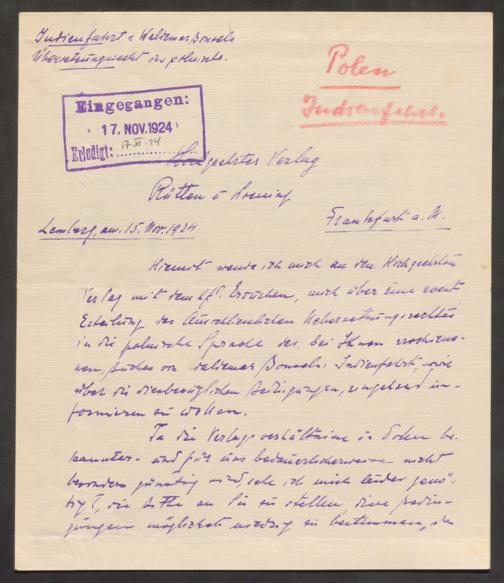 Indienfahrt v. Waldemar Bonsels
Übersetzungsrecht ins polnische.
Polen
Indienfahrt.
Eingegangen:
17. NOV. 1924
Erledigt: 17. XI. 24
Hochgeehrter Verlag
Rütten u Loening
Lemberg, am 15. Nov. 1924
Frankfurt a. M.
Hiemit wende ich mich an den Hochgeehrten
Verlag mit dem höfl. Ersuchen, mich über eine event
Erteilung des Ausschliesslichen Uebersetzungsrechtes
in die polnische Sprache des, bei Ihnen erschiene-
nen, Buches von Waldemar Bonsels: Indienfahrt, sowie
über die diesbezüglichen Bedingungen, eingehend in-
formieren zu wollen.
Da die Verlagsverhältnisse in Polen be-
kannter- und für uns bedauerlicherweise nicht
besonders günstig sind sehe ich mich leider genö-
tigt, die Bitte an Sie zu stellen, diese Bedin-
gungen möglichst niedrig zu bestimmen, da